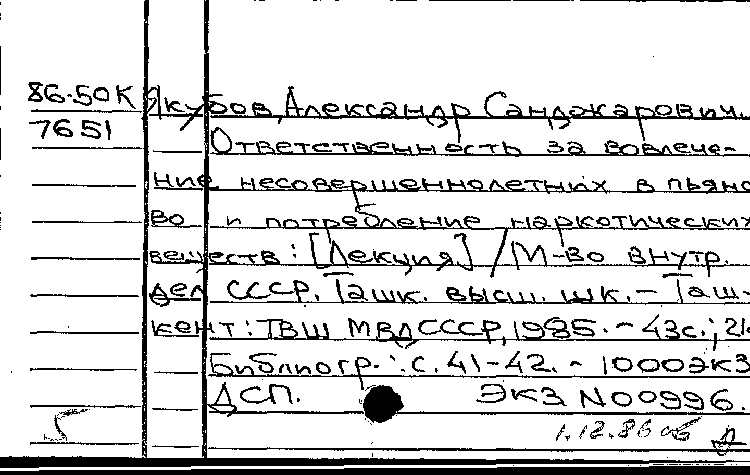 86-50К Якубов, Александр Санджарович.
7651
Ответственность за вовлече-
ние несовершеннолетних в пьянс
во и потребление наркотических
веществ: [Лекция] / М-во внутр.
дел СССР. Ташк. высш. шк. – Таш-
кент: ТВШ МВД СССР, 1985. – 43с.; 21.
Библиогр.: с. 41-42. – 1000экз
ДСП. ЭКЗ N00996.
1.12.86